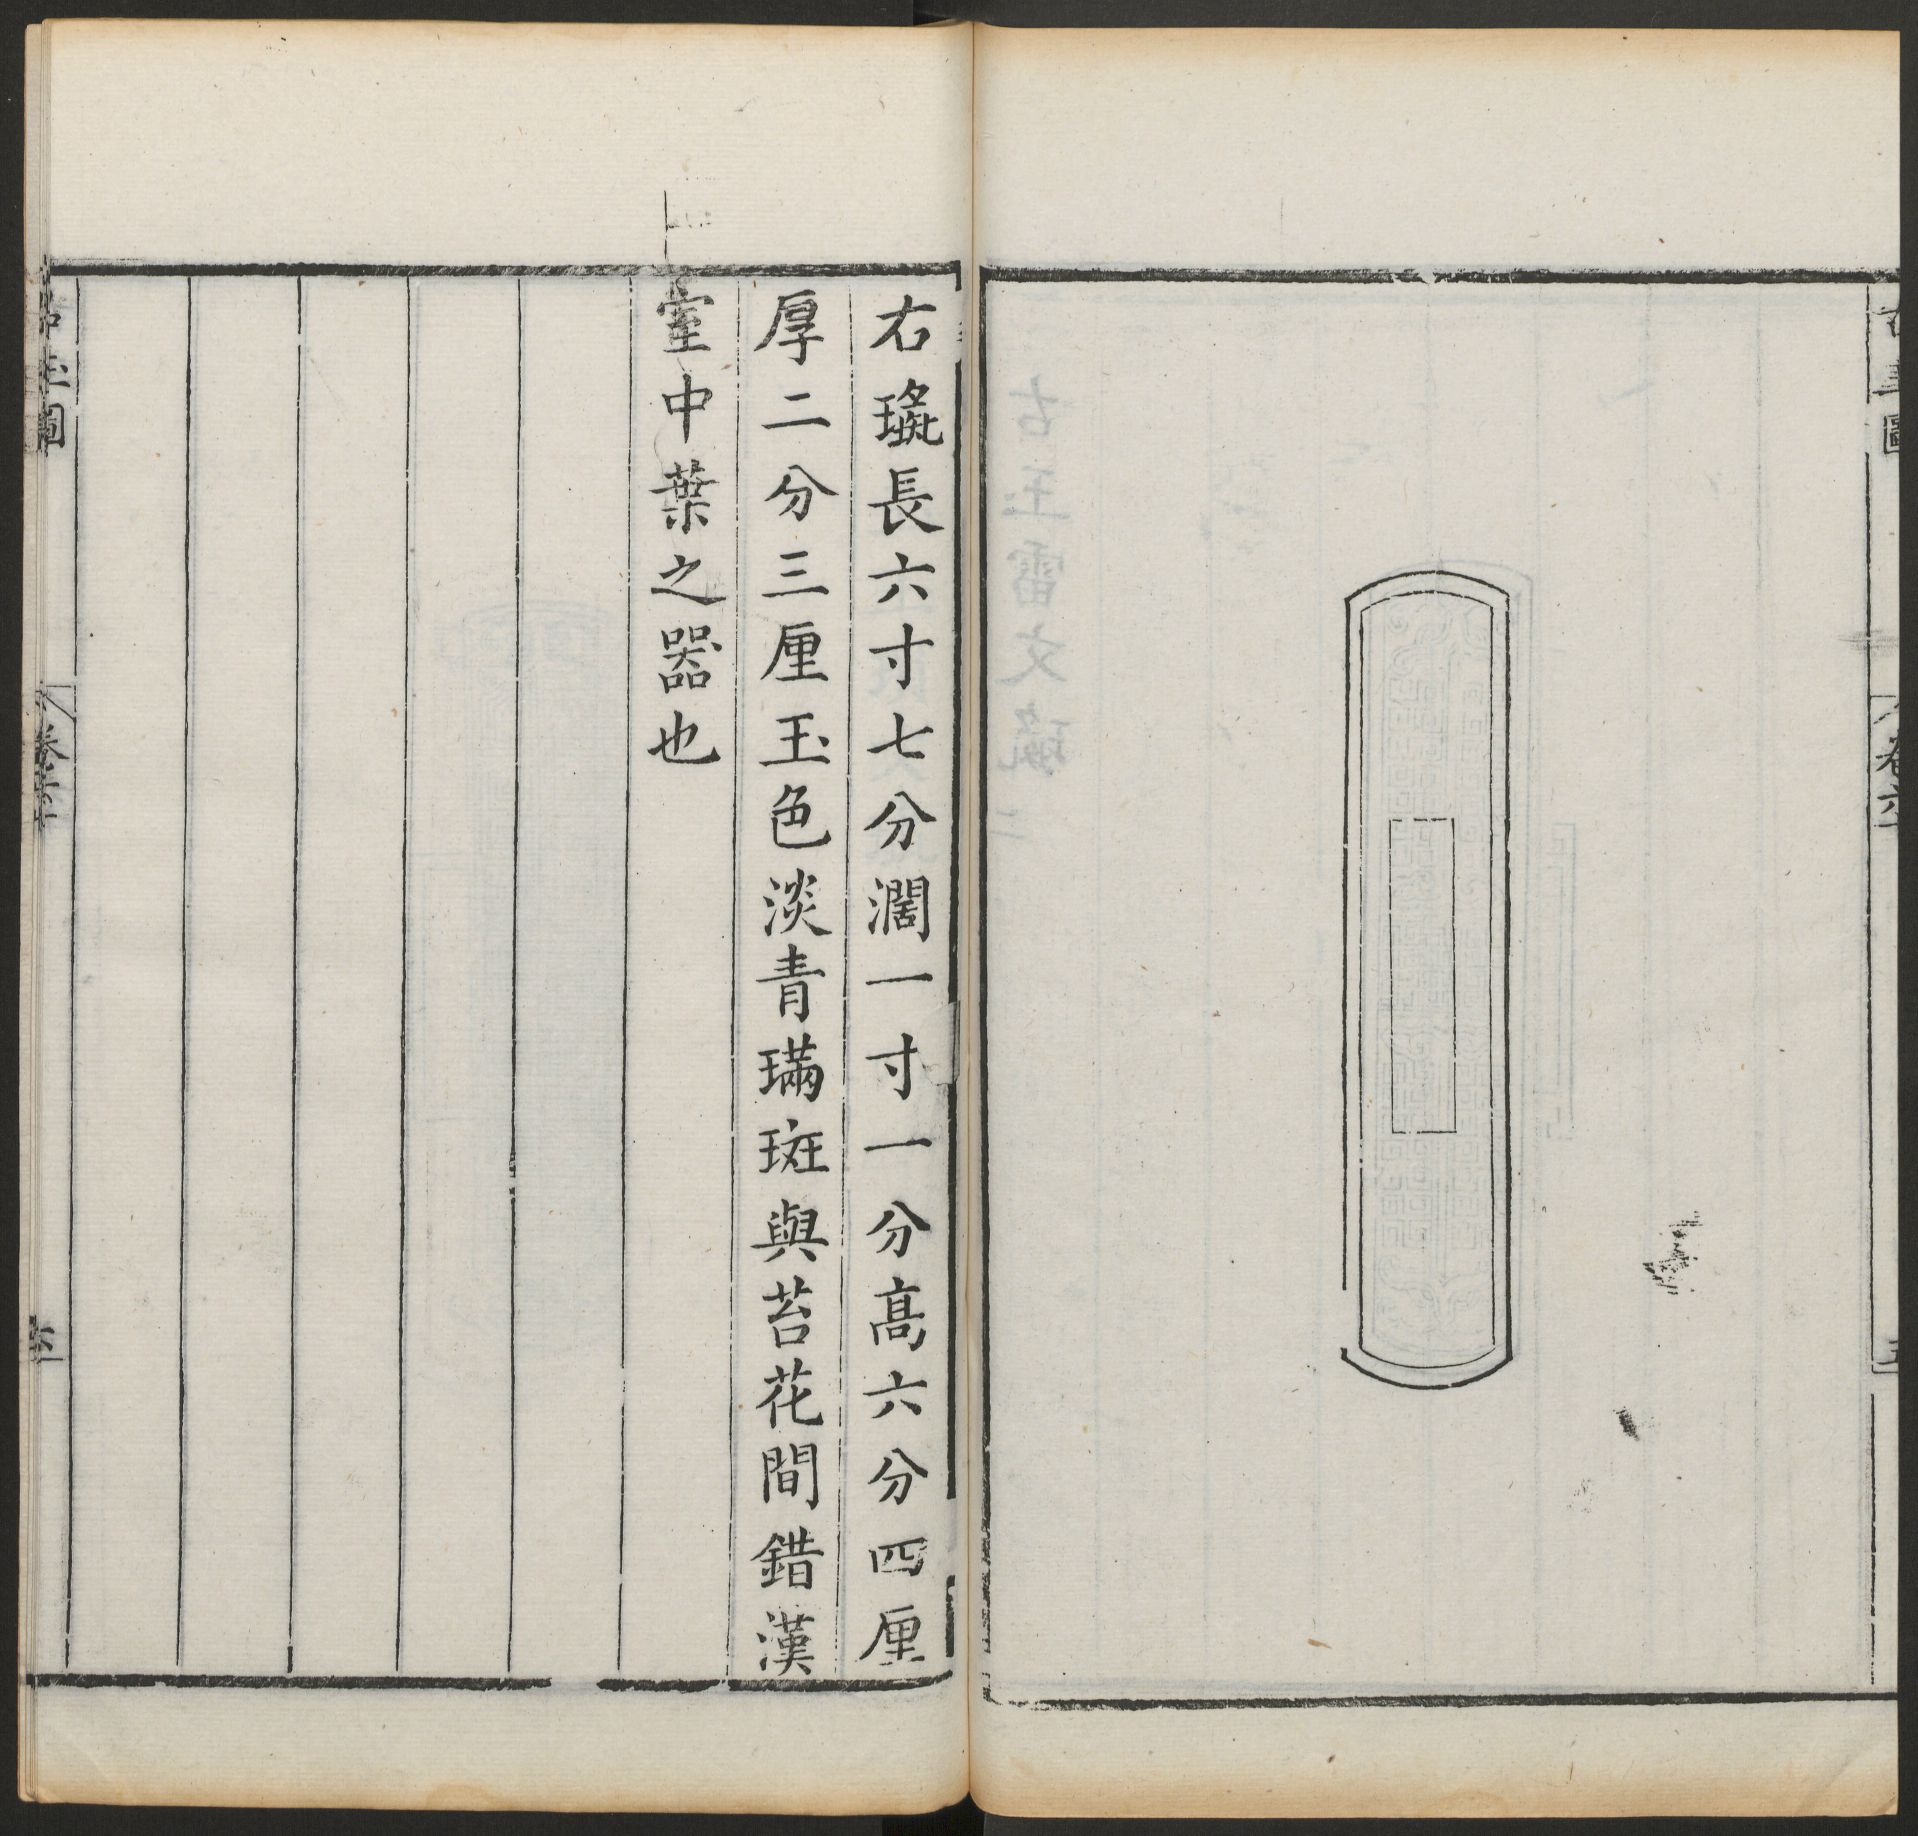 古玉圖
卷六
五
右璏長六寸七分濶一寸一分髙六分四厘
厚二分三厘玉色淡青璊斑與苔花間錯漢
室中葉之器也
古玉圖
卷六
六